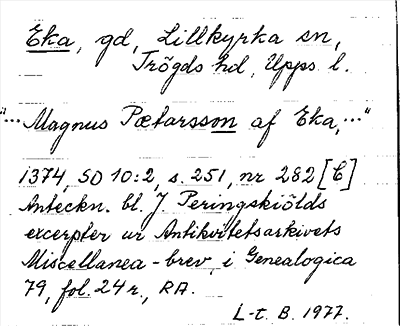 Eka, gd, Lillkyrka sn,
Trögds hd, Upps l.
"... Magnus Pætarsson af Eka,..."
1374, SD 10:2, s. 251, nr 282 [C]
Anteckn. bl. J. Peringskiölds
excerpter ur Antikvitetsarkivets
Miscellanea-brev, i Genealogica
79, fol. 24 r., RA.
L-t. B. 1977.